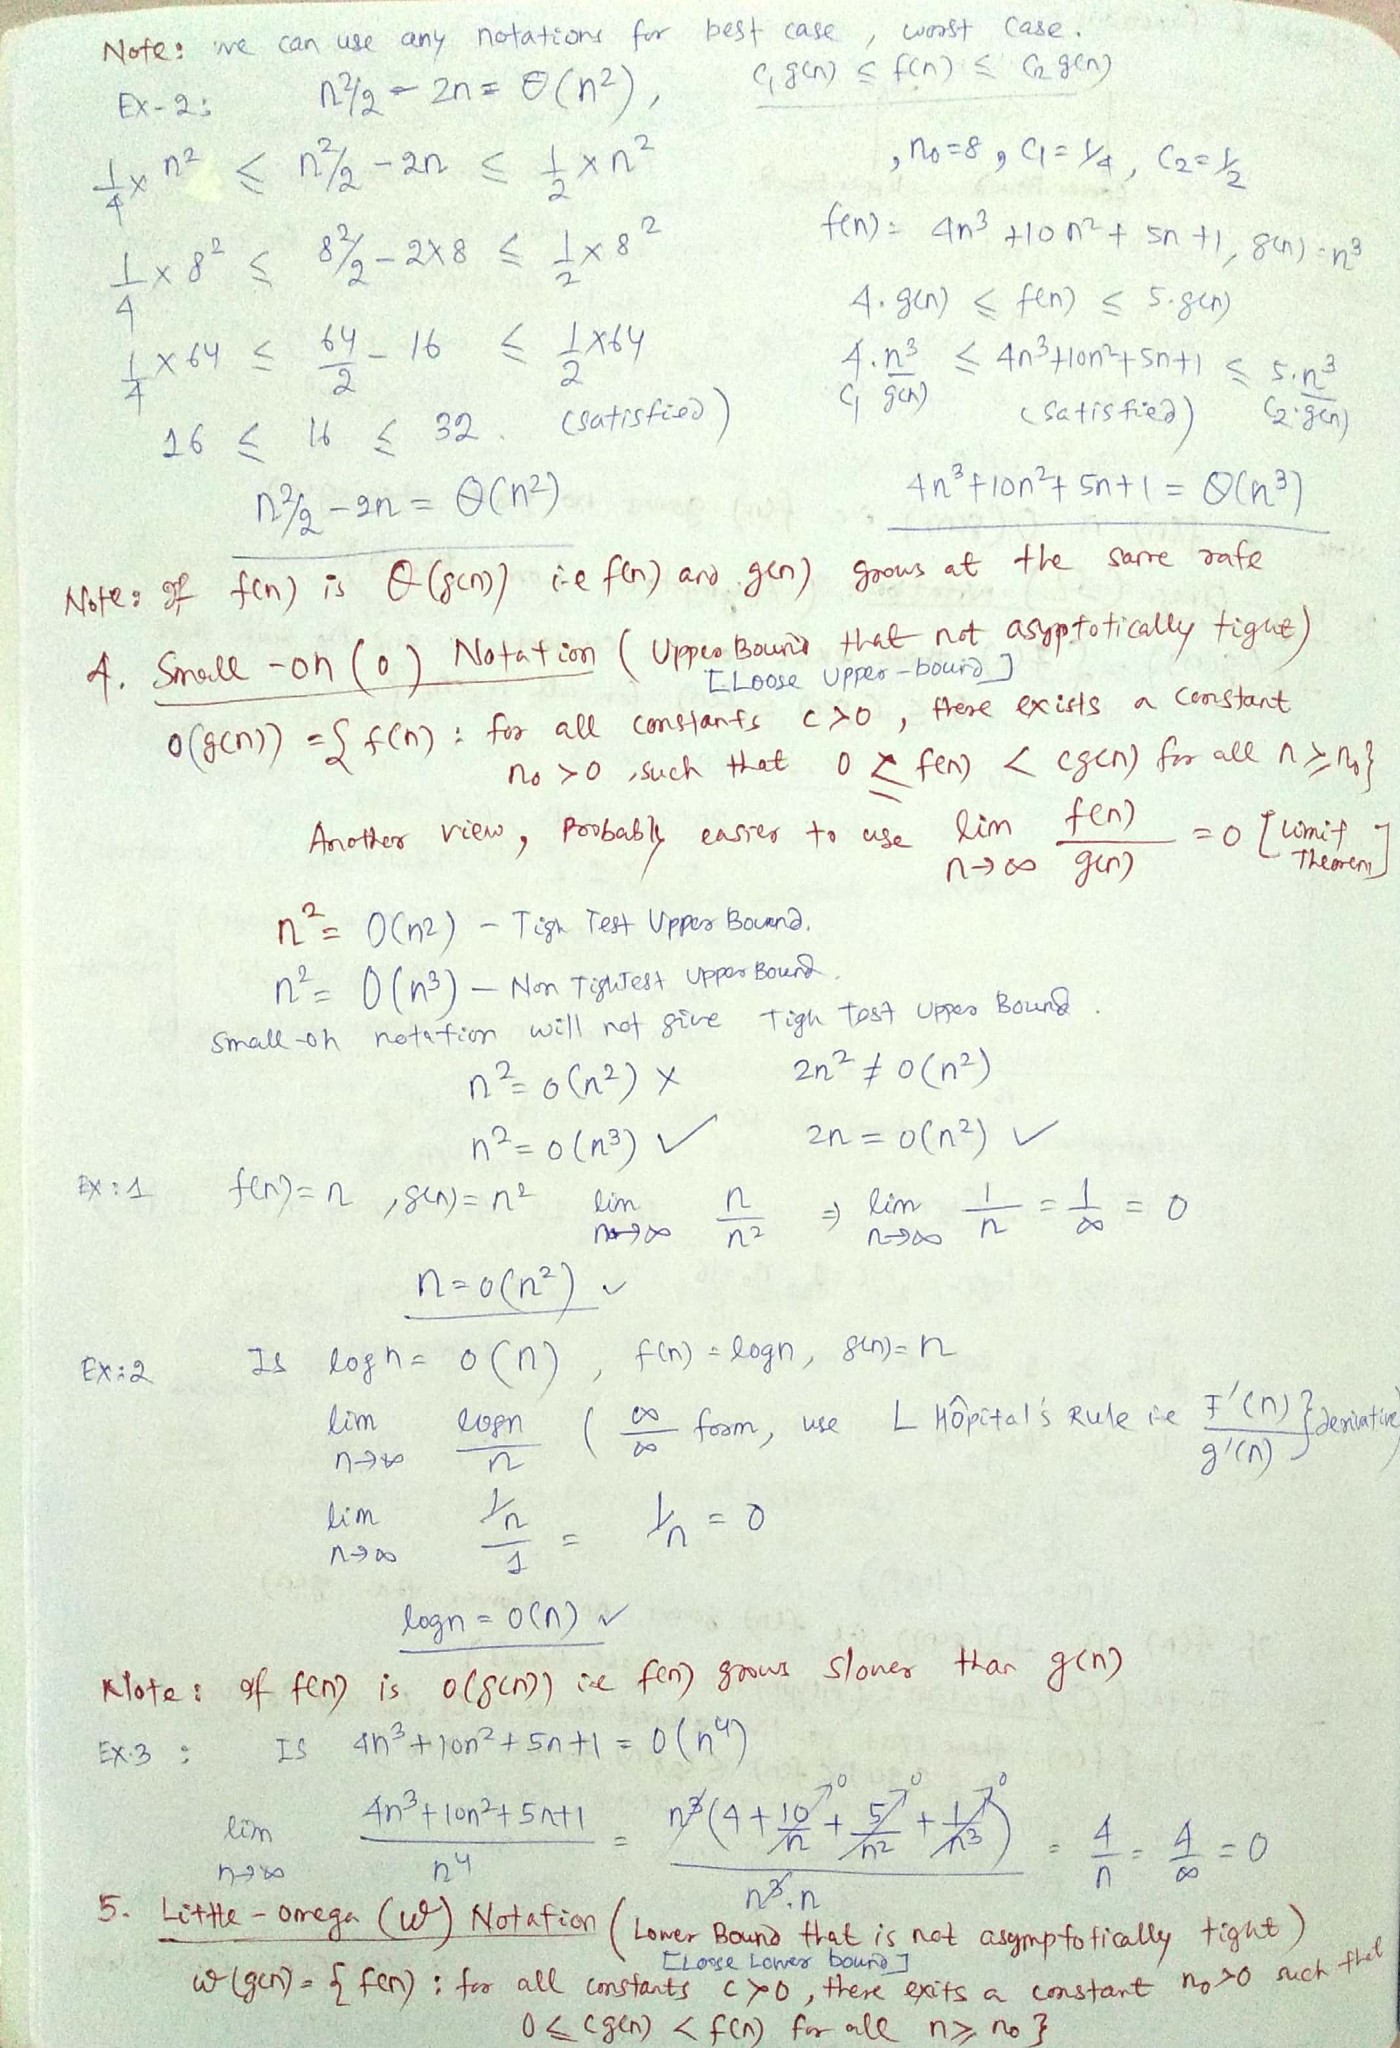 Note: we can use any notations for best case, worst case.
Ex-2: n²/2 - 2n = Θ(n²), C₁g(n) ≤ f(n) ≤ C₂g(n)
1/4 × n² ≤ n²/2 - 2n ≤ 1/2 × n² , n₀=8, C₁=1/4, C₂=1/2
1/4 × 8² ≤ 8²/2 - 2×8 ≤ 1/2 × 8² f(n) = 4n³ + 10n² + 5n + 1, g(n) = n³
4.g(n) ≤ f(n) ≤ 5.g(n)
1/4 × 64 ≤ 64/2 - 16 ≤ 1/2 × 64 4.n³ ≤ 4n³+10n²+5n+1 ≤ 5.n³
C₁ g(n) (satisfied) C₂.g(n)
16 ≤ 16 ≤ 32. (satisfied)
n²/2 - 2n = Θ(n²) 4n³+10n²+5n+1 = Θ(n³)
Note: If f(n) is Θ(g(n)) i.e f(n) and g(n) grows at the same rate
4. Small -oh (o) Notation (Upper Bound that not asyptotically tight)
[Loose Upper-bound]
o(g(n)) = { f(n) : for all constants c>0, there exists a constant
n₀ >0, such that 0 ≤ f(n) < cg(n) for all n ≥ n₀}
Another view, Probably easier to use lim n→∞ f(n)/g(n) = 0 [Limit Theorem]
n² = O(n²) - Tigh Test Upper Bound.
n² = O(n³) - Non Tightest Upper Bound.
Small-oh notation will not give Tigh Test Upper Bound.
n² = o(n²) × 2n² ≠ o(n²)
n² = o(n³) ✓ 2n = o(n²) ✓
Ex:1 f(n) = n, g(n) = n² lim n→∞ n/n² ⇒ lim n→∞ 1/n = 1/∞ = 0
n = o(n²) ✓
Ex:2 Is logn = o(n), f(n) = logn, g(n) = n
lim n→∞ logn/n (∞/∞ form, use L Hôpital's Rule i.e F'(n)/g'(n) } derivative
lim n→∞ 1/n/1 = 1/n = 0
logn = o(n) ✓
Note: If f(n) is o(g(n)) i.e f(n) grows slower than g(n)
Ex-3: Is 4n³+10n²+5n+1 = o(n⁴)
lim n→∞ 4n³+10n²+5n+1/n⁴ = n³(4+10/n+5/n²+1/n³)/n³.n = 4/n = 4/∞ = 0
5. Little-omega (ω) Notation (Lower Bound that is not asymptotically tight)
[Loose Lower bound]
ω(g(n)) = { f(n) : for all constants c>0, there exits a constant n₀>0 such that
0 ≤ cg(n) < f(n) for all n ≥ n₀ }